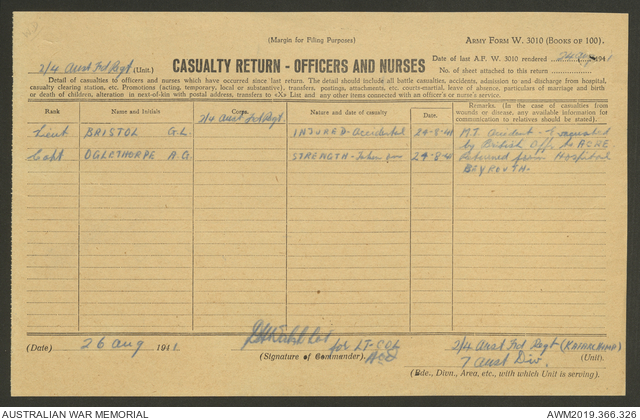 (Margin for Filing Purposes)
ARMY FORM W. 3010 (BOOKS OF 100).
2/4 Aust Fd Regt (Unit.)
CASUALTY RETURN - OFFICERS AND NURSES
Date of last A.F. W. 3010 rendered 24 Aug 1941
No. of sheet attached to this return
Detail of casualties to officers and nurses which have occurred since last return. The detail should include all battle casualties, accidents, admission to and discharge from hospital,
casualty clearing station, etc. Promotions (acting, temporary, local or substantive), transfers, postings, attachments, etc. courts-martial, leave of absence, particulars of marriage and birth
or death of children, alteration in next-of-kin with postal address, transfers to «X» List and any other items connected with an officer's or nurse's service.
Rank
Name and Initials
Corps
2/4 Aust Fd Regt.
Nature and date of casualty
Date.
Remarks. (In the case of casualties from
wounds or disease, any available information for
communication to relatives should be stated).
Lieut BRISTOL G.L. INJURED - Accidental 24-8-41 M.T. Accident - Evacuated
by British Offr to ACRE
Capt OGLETHORPE A.G. STRENGTH - Taken on 24-8-41 Returned from Hospital
BEYROUTH.
(Date) 26 Aug 1941
for LT-COL
(Signature of Commander).
2/4 Aust Fd Regt
(Unit).
7 Aust Div.
(Bde., Divn., Area, etc., with which Unit is serving).
AUSTRALIAN WAR MEMORIAL
AWM2019.366.326